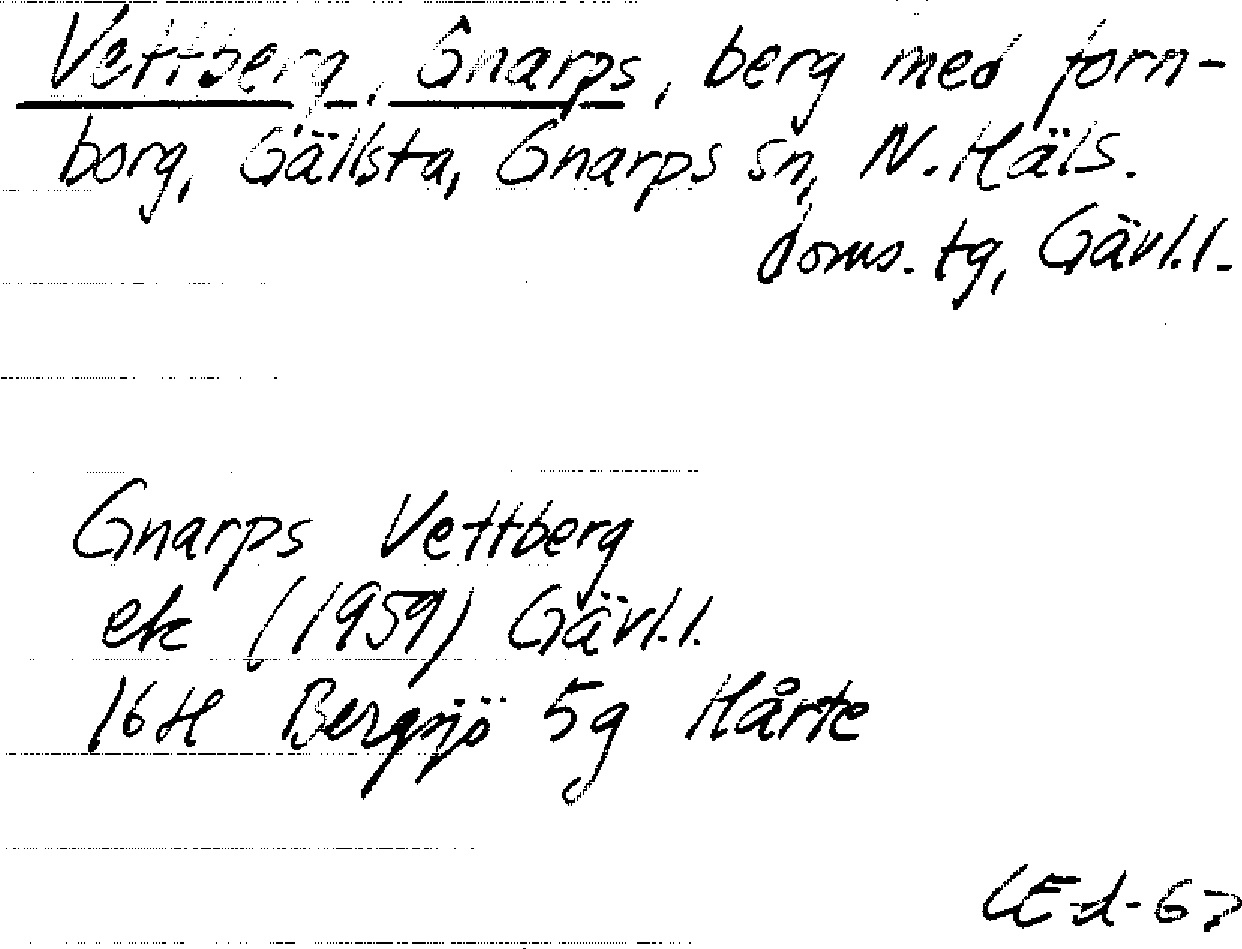 Vettberg, Gnarps, berg med forn-
borg, Gällsta, Gnarps sn, N. Häls.
doms. tg, Gävl.l.
Gnarps Vettberg
ek (1959) Gävl.l.
16H Bergsjö 5g Hårte